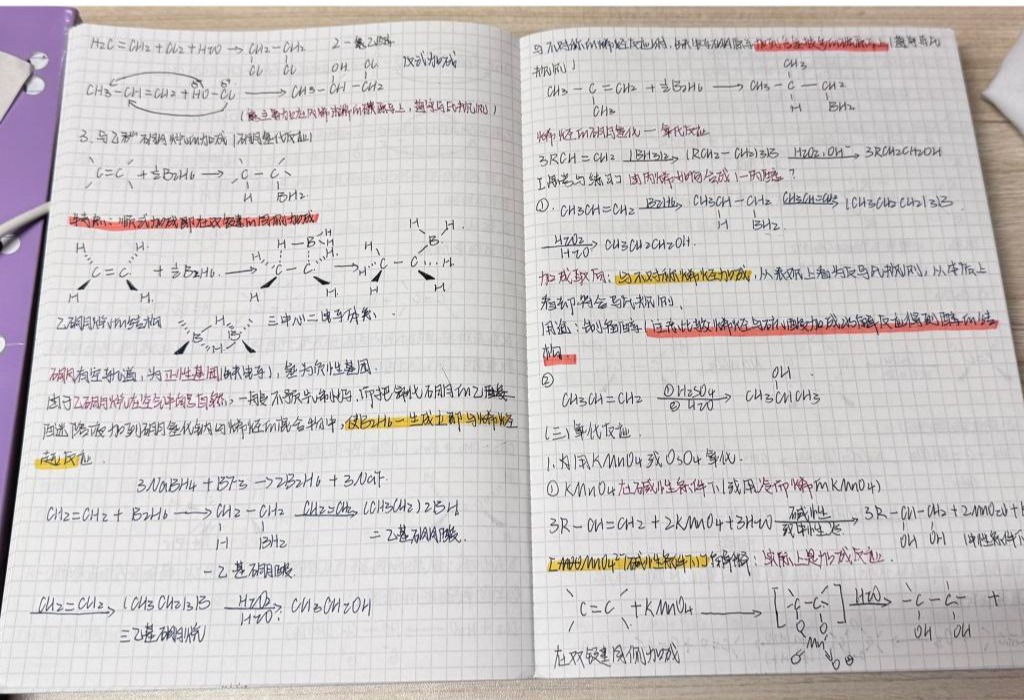 H2C=CH2+Cl2+H2O → CH2-CH2
Cl Cl OH Cl 反式加成
CH3-CH=CH2+HO-Cl → CH3-CH-CH2
3. 与乙硼烷的加成(硼氢化反应)
C=C + ½B2H6 → C-C
H BH2
特点:顺式加成即在双键的同侧加成
H H H-B H H H B H
C=C + ½B2H6 → C-C → C-C
H H H H H H
乙硼烷的结构 H B B H 三中心二电子体系
硼有空轨道,为正性基团(缺电子),氢为负性基团
由于乙硼烷在空气中自燃,一般不预先制好,而把氟化硼的乙醚
液加到硼氢化钠与烯烃的混合物中,使B2H6一生成立即与烯烃
起反应
3NaBH4+BF3→2B2H6+3NaF
CH2=CH2+B2H6 → CH2-CH2 CH2=CH2 (CH3CH2)2BH
H BH2 二乙基硼烷
一乙基硼烷
CH2=CH2 → (CH3CH2)3B H2O2 H2O → CH3CH2OH
三乙基硼烷
与不对称的烯烃反应时,
CH3
CH3-C=CH2+½B2H6 → CH3-C-CH2
CH3 H BH2
烯烃的硼氢化-氧化反应
3RCH=CH2 (BH3)2 → (RCH2-CH2)3B H2O2,OH⁻ → 3RCH2CH2OH
[思考与练习] 由丙烯如何合成1-丙醇?
①. CH3CH=CH2 B2H6 → CH3CH-CH2 CH3CH=CH2 → (CH3CH2CH2)3B
H BH2
H2O2 H2O → CH3CH2CH2OH.
加成取向:与不对称烯烃加成,从表面上看为反马氏规则,从本质上
看却符合马氏规则
用途:制备伯醇(注意比较烯烃与硫酸加成水解反应得到醇的结
构.
② OH
CH3CH=CH2 ①H2SO4 ②H2O → CH3CHCH3
(三)氧化反应
1. 用KMnO4或OsO4氧化.
① KMnO4在碱性条件下(或用冷而稀的KMnO4)
3R-CH=CH2+2KMnO4+3H2O 碱性 → 3R-CH-CH2+2MnO2↓+
或中性 OH OH (中性条件
实际上是加成反应.
C=C +KMnO4 → [-C-C-] H2O → -C-C- +
O O Mn O O OH OH
在双键同侧加成